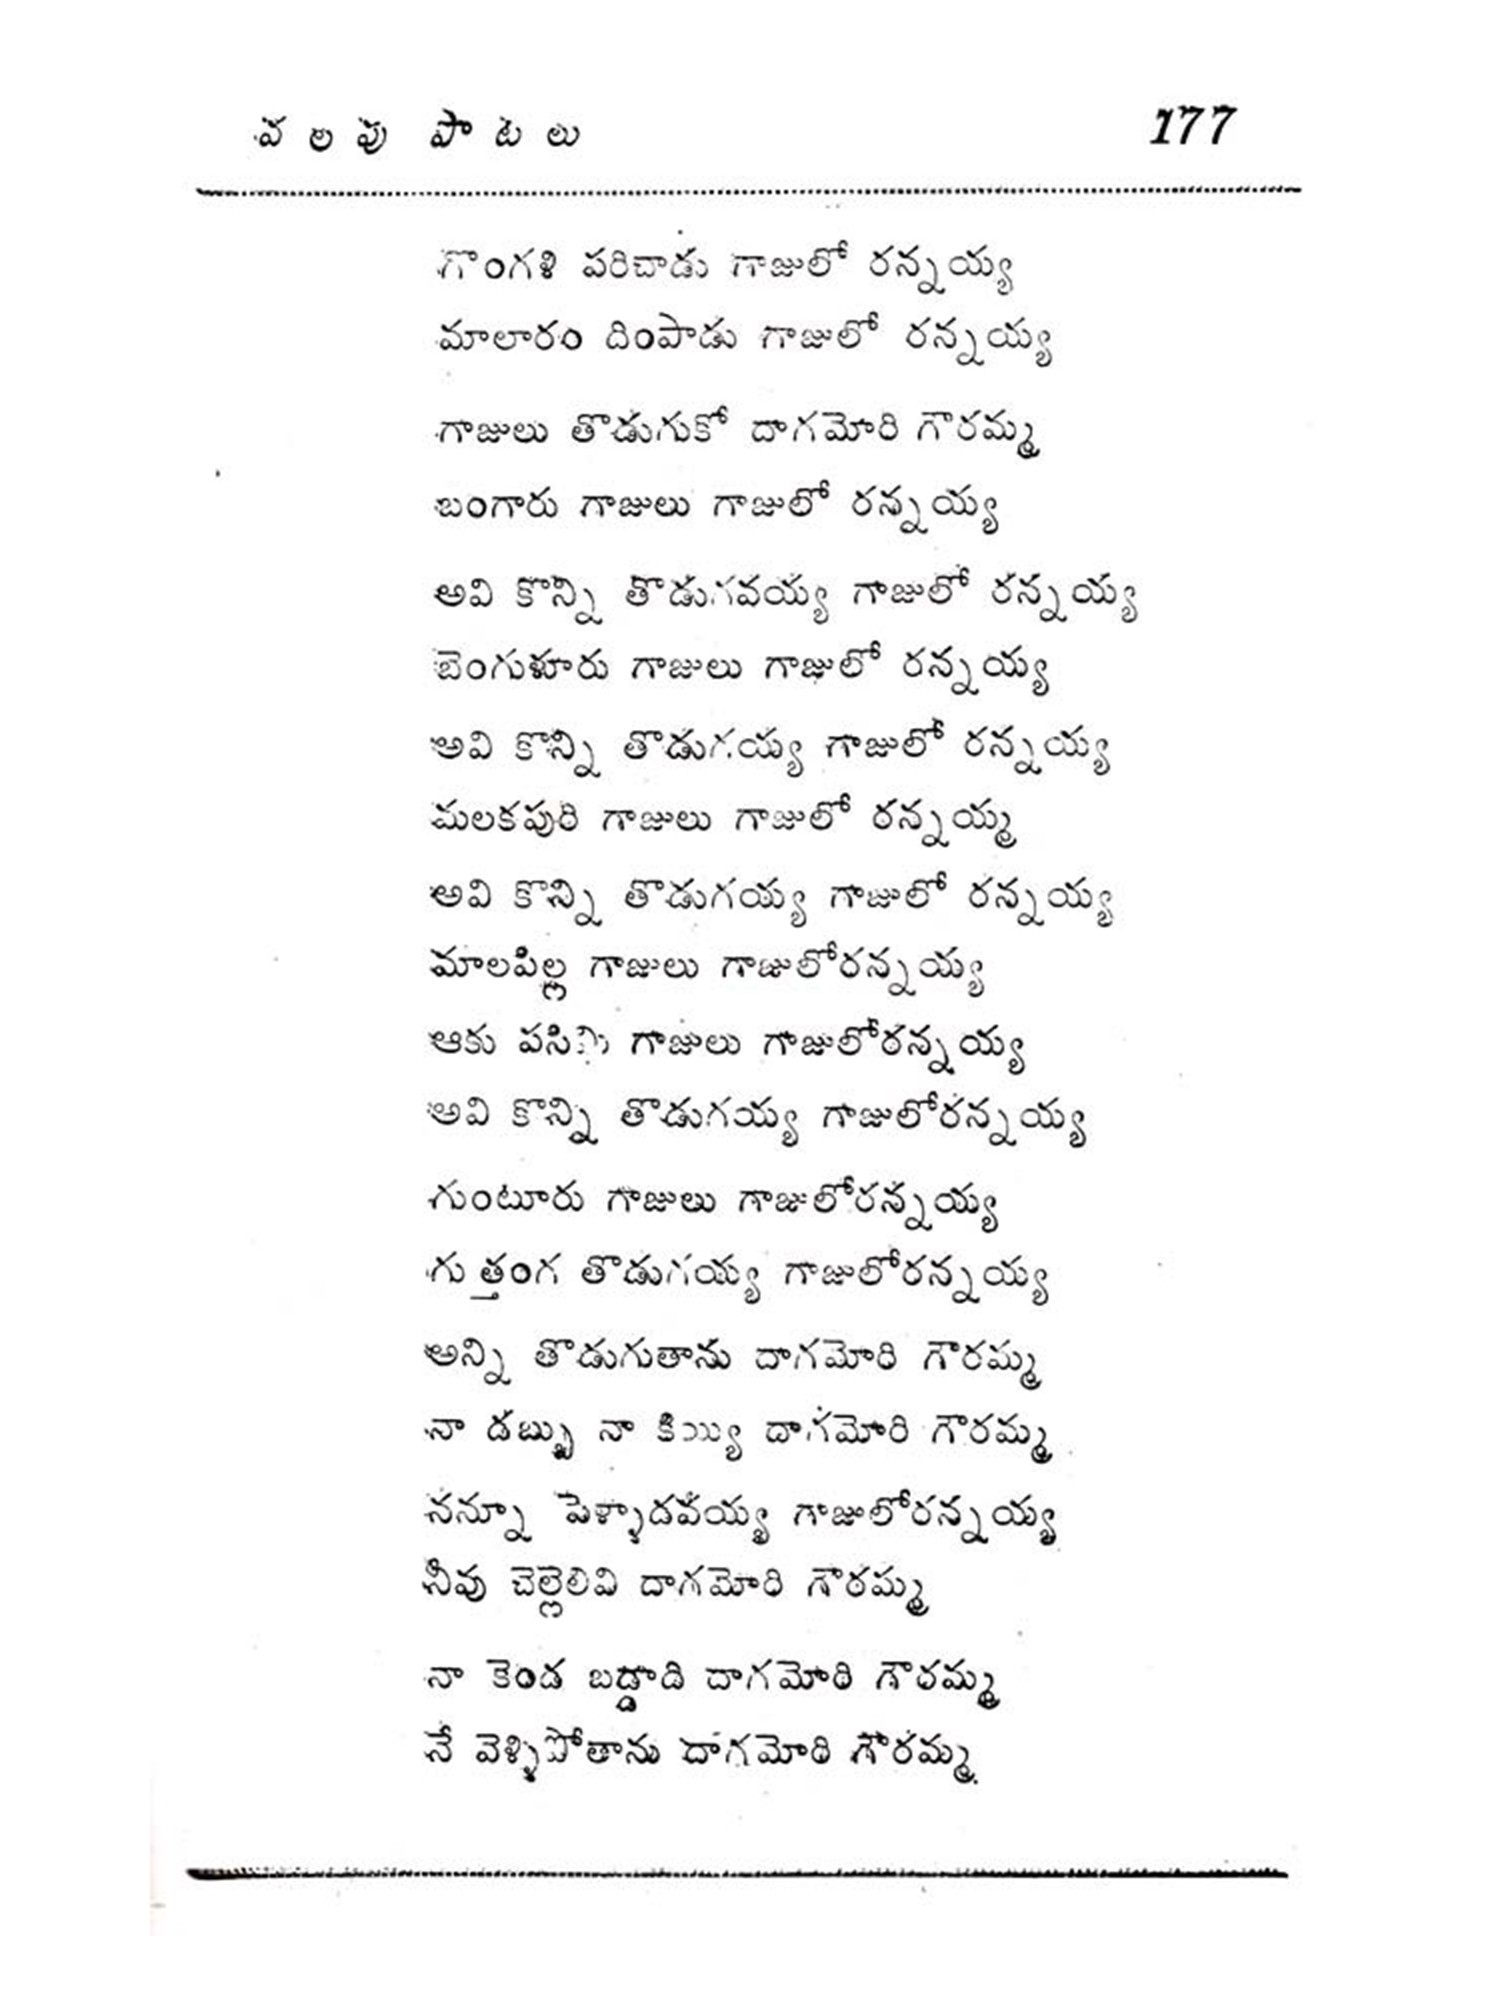 వలపు పాటలు 177
గొంగళి పరిచాడు గాజులో రన్నయ్య
మాలారం దింపాడు గాజులో రన్నయ్య
గాజులు తొడుగుకో దాగమోరి గౌరమ్మ
బంగారు గాజులు గాజులో రన్నయ్య
అవి కొన్ని తొడుగవయ్య గాజులో రన్నయ్య
బెంగుళూరు గాజులు గాజులో రన్నయ్య
అవి కొన్ని తొడుగయ్య గాజులో రన్నయ్య
మలకపురి గాజులు గాజులో రన్నయ్మ
అవి కొన్ని తొడుగయ్య గాజులో రన్నయ్య
మాలపిల్ల గాజులు గాజులోరన్నయ్య
ఆకు గాజులు గాజులోరన్నయ్య
అవి కొన్ని తొడుగయ్య గాజులోరన్నయ్య
గుంటూరు గాజులు గాజులోరన్నయ్య
గుత్తంగ తొడుగయ్య గాజులోరన్నయ్య
అన్ని తొడుగుతాను దాగమోరి గౌరమ్మ
నా డబ్బు నా కియ్యి దాగమోరి గౌరమ్మ
నన్నూ పెళ్ళాదవయ్య గాజులోరన్నయ్య
నీవు చెల్లెలివి దాగమోరి గౌరమ్మ
నా కెండ బడ్డాది దాగమోరి గౌరమ్మ
నే వెళ్ళిపోతాను దాగమోరి గౌరమ్మ